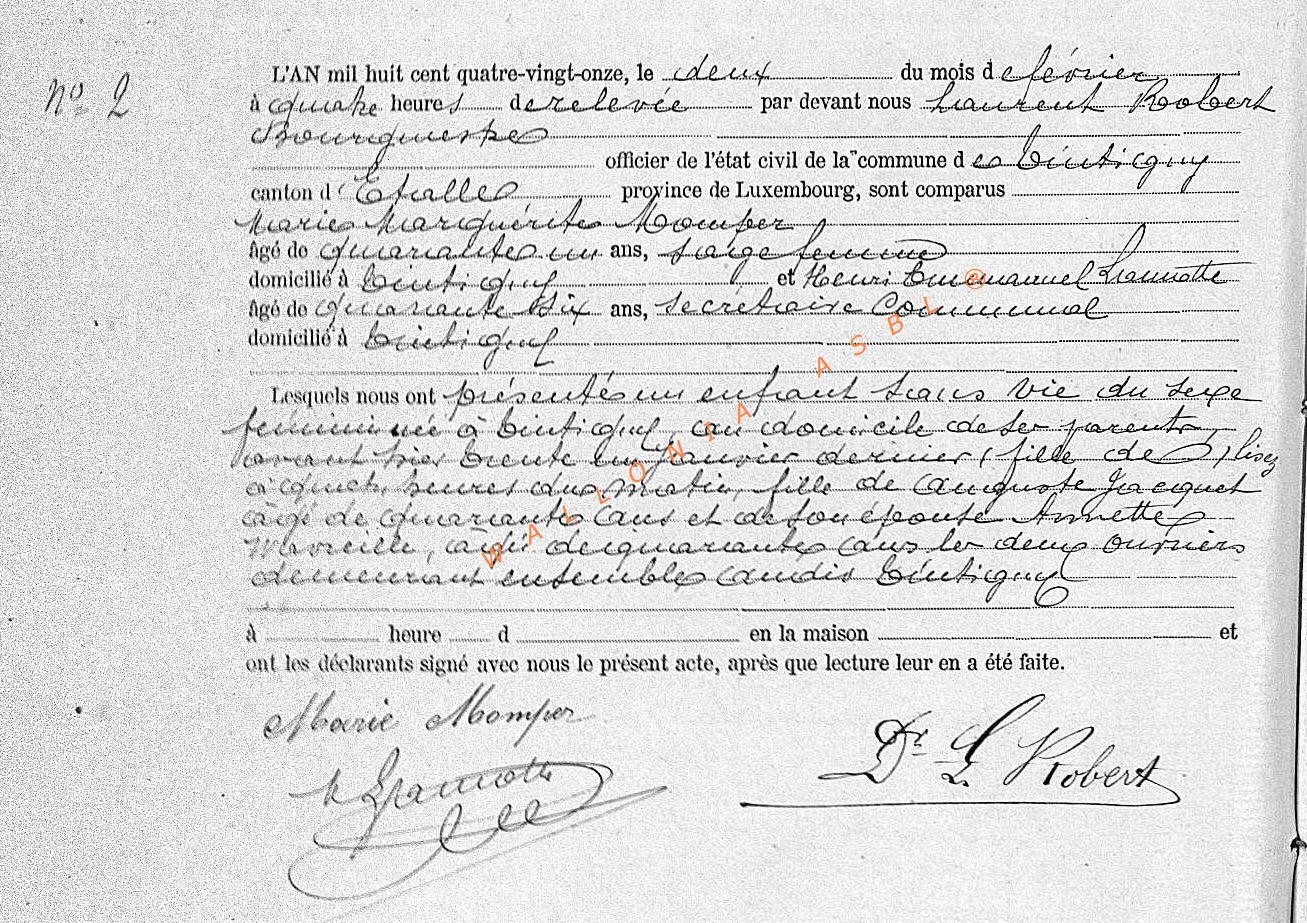 N° 2
L'AN mil huit cent quatre-vingt-onze, le deux du mois de février
à quatre heures de relevée par devant nous Laurent Robert
Bourgmestre
officier de l'état civil de la commune de Tintigny
canton d'Etalle province de Luxembourg, sont comparus
Marie Marguérite Momper
âgé de quarante un ans, sage femme
domicilié à Tintigny et Henri Emmanuel Lamotte
âgé de quarante six ans, secrétaire Communal
domicilié à Tintigny
Lesquels nous ont présenté un enfant sans vie du sexe
féminin né à Tintigny, au domicile de ses parents,
avant hier trente un Janvier dernier, (fille de) lisez
à heures du matin, fille de Auguste Jacquet
âgé de quarante ans et de son épouse Annette
âgée de quarante ans les deux ouvriers
demeurant ensemble audit Tintigny
à heure d en la maison et
ont les déclarants signé avec nous le présent acte, après que lecture leur en a été faite.
Marie Momper
Dr L Robert
h Lamotte
WALLONIA ASBL ®